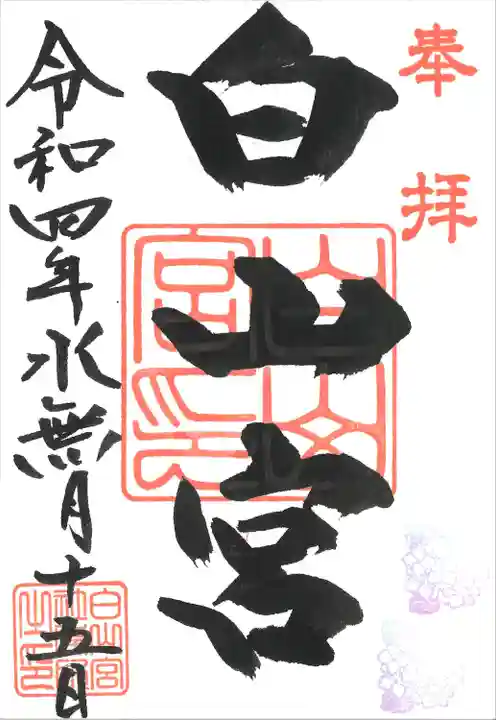 奉拝
白山宮
令和四年水無月十五日
白山宮印